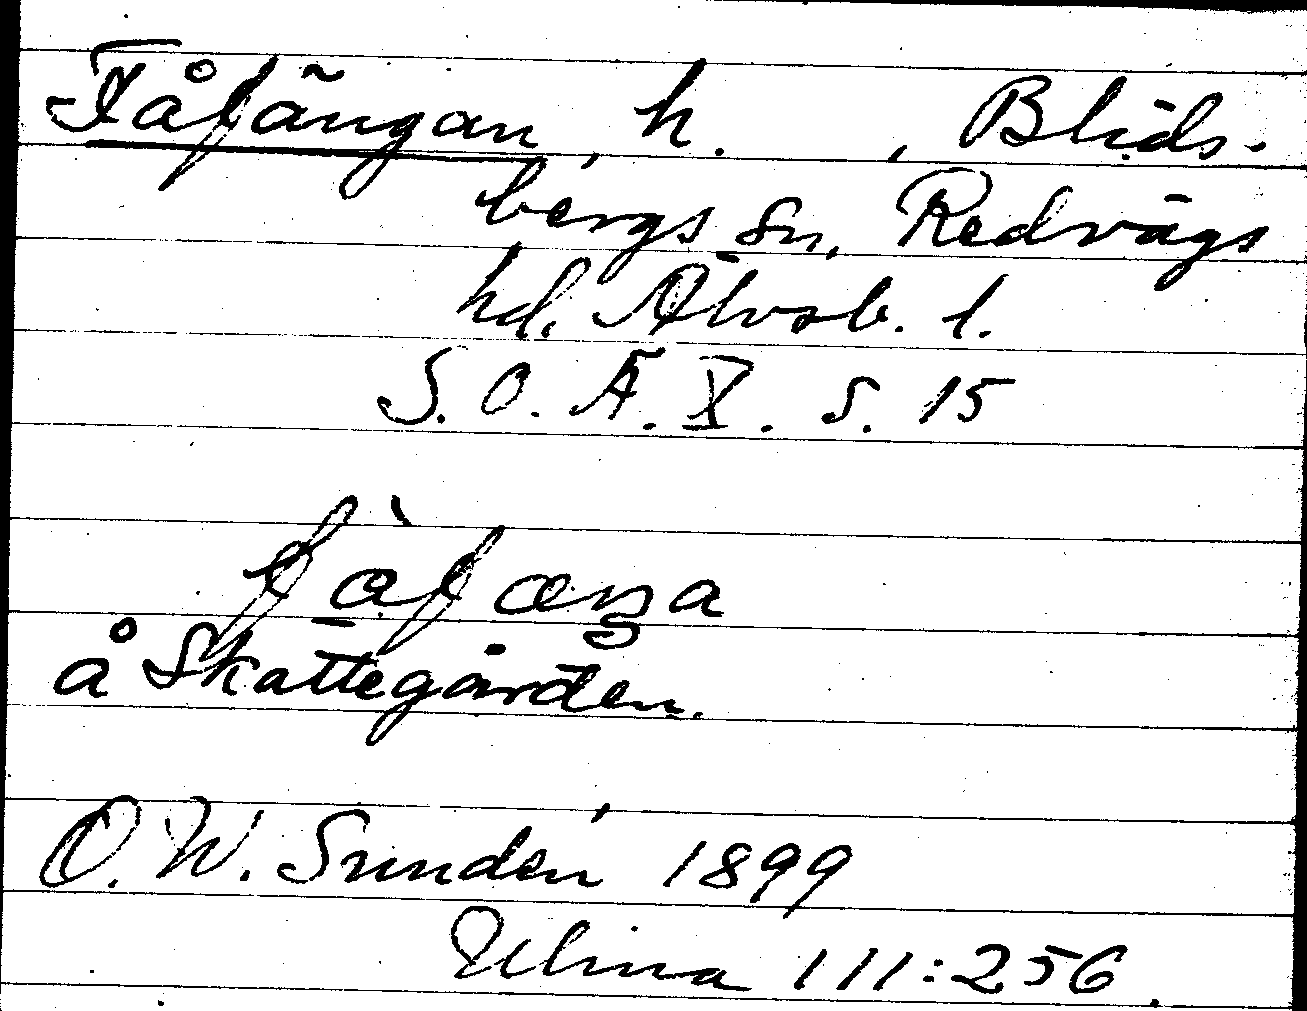 Fåfängan, h. , Blids-
bergs sn, Redvägs
hd. Älvsb. l.
S. O. Ä. X. s. 15
fàfæŋa
å Skattegården.
O. W. Sundén 1899
Ulma 111:256.